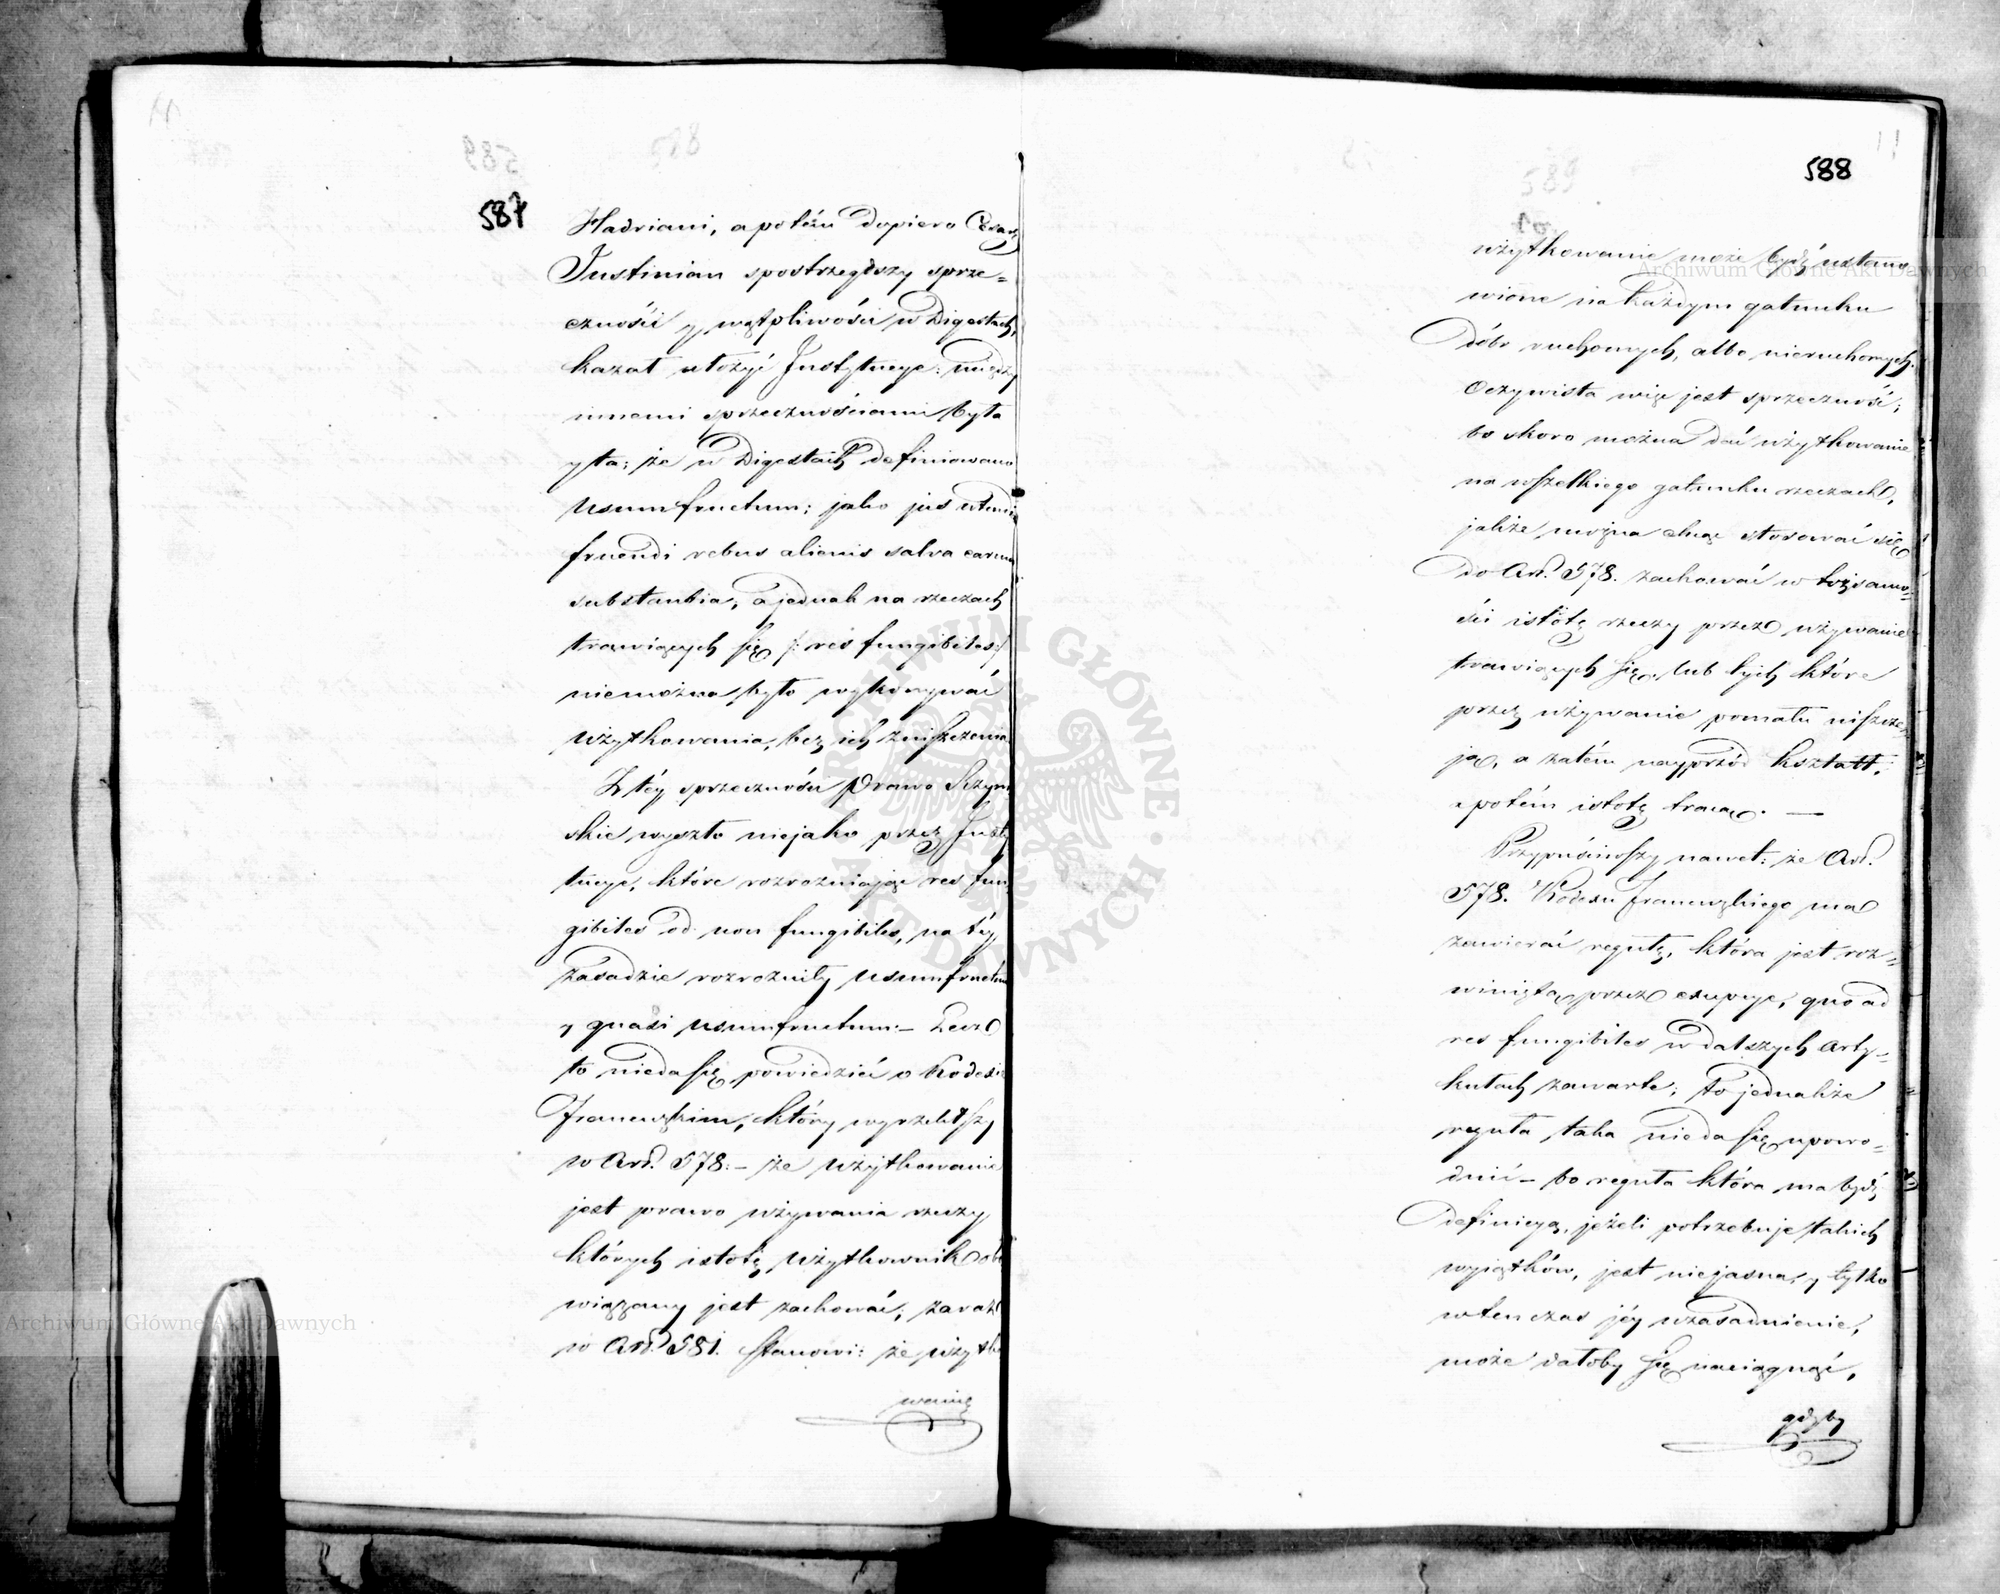 587
Hadriani, a potém dopiero Cesarz
Justinian spostrzegłszy sprze=
czności y wątpliwości w Digestach,
kazał ułożyć Instytucye: między
innemi sprzecznościami była
y ta; że w Digestach definiowano
Usumfructum; jako jus utendi
fruendi rebus alienis salva earum
substantia, a jednak na rzeczach
trawiących się /: res fungibiles :/
niemożna było wykonywać
Użytkowania, bez ich zniszczenia
Z téy sprzeczności Prawo Rzym
skie wyszło niejako przez Insty
tucye, które rozrozniając res fun
gibiles od non fungibiles, na téy
zasadzie rozrożniły Usumfructum
y quasi Usumfructum:— Lecz
to nieda się powiedzieć o Kodexie
Francuzkim, który wyrzekłszy
w Art. 578:— że Użytkowanie
jest prawo używania rzeczy
których istotę Użytkownik obo
wiązany jest zachować; zaraz
w Art. 581. stanowi: że użytko
wanie
588
użytkowanie może bydź ustano
wione na każdym gatunku
dóbr ruchomych, albo nieruchomych.
Oczywista więc jest sprzeczność;
bo skoro można dać użytkowanie
na wszelkiego gatunku rzeczach,
jakże można chcąc stosować się
do Art. 578. zachować w tożsamo=
ści istotę rzeczy przez używanie
trawiących się, lub tych które
przez używanie pomału niszcze
ją, a zatém nayprzód kształt,
a potém istotę tracą. —
Przypuściwszy nawet: że Art.
578. Kodexu Francuzkiego ma
zawierać regułę, która jest roz=
winiętą przez excepcye, quo ad
res fungibiles w dalszych Arty=
kułach zawarte; to jednakże
reguła taka nieda się upowo=
dnić — bo reguła która ma bydź
definicyą, jeżeli potrzebuje takich
wyiątków, jest niejasna, y tylko
wtenczas jéy uzasadnienie,
może dałoby się naciągnąć,
gdyby
ARCHIWUM GŁÓWNE AKT DAWNYCH
Archiwum Główne Akt Dawnych
Archiwum Główne Akt Dawnych